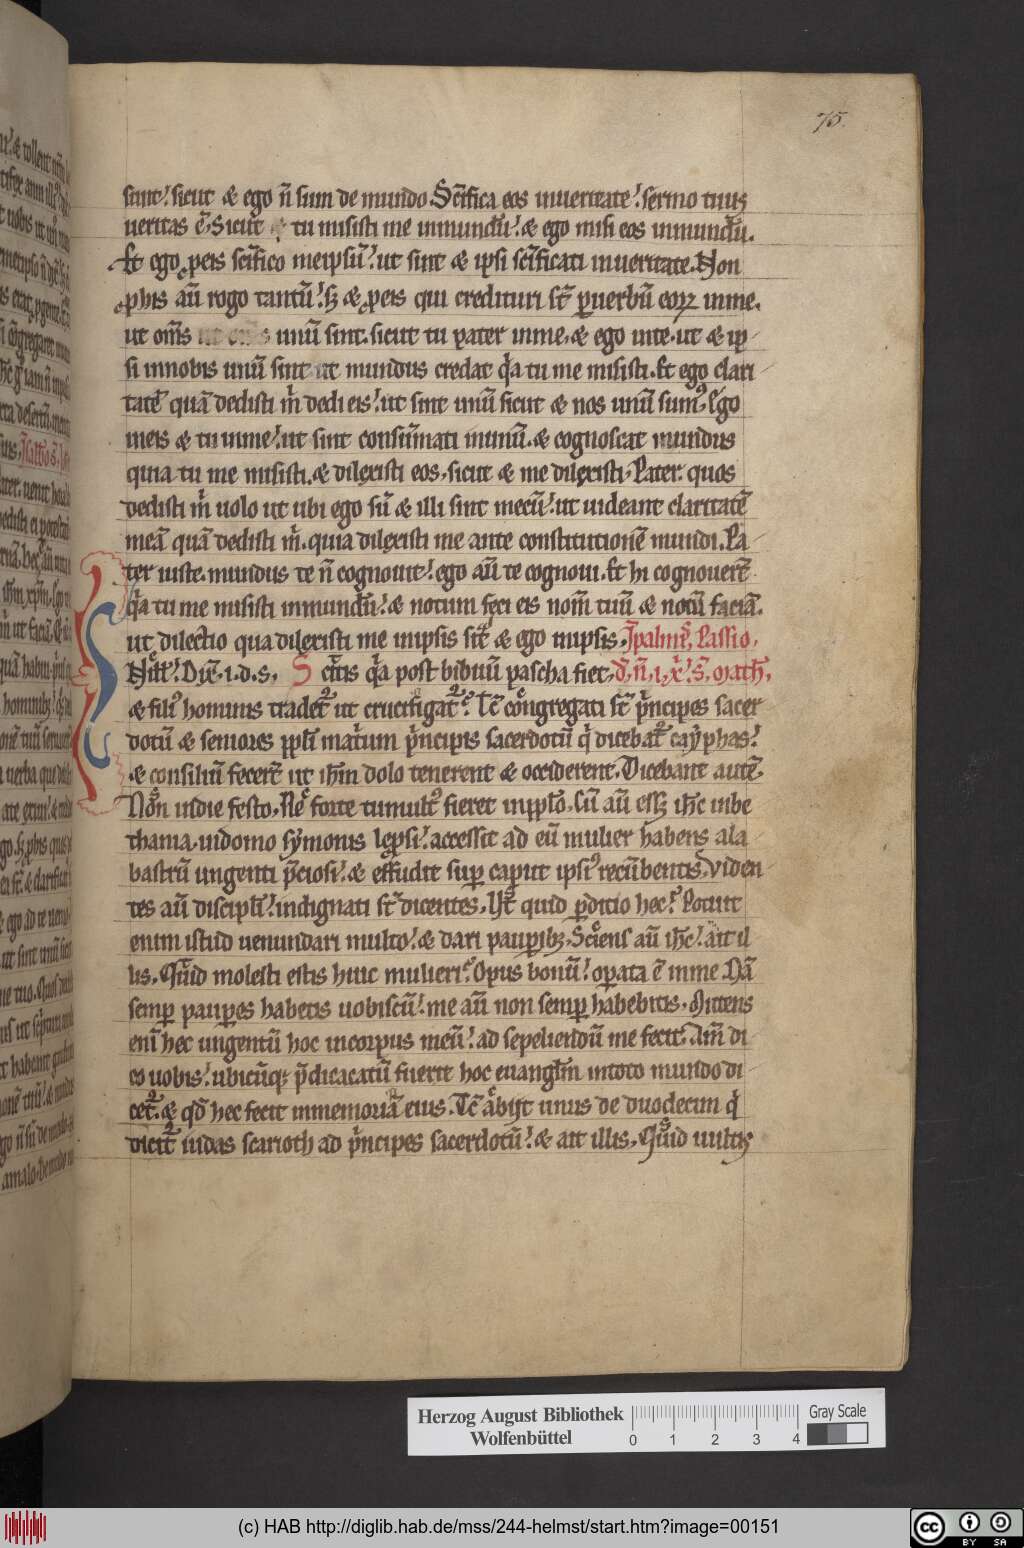 75.
sunt! sicut & ego ñ sum de mundo. Scĩfica eos inueritate! sermo tuus
ueritas ẽ. Sicut tu misisti me inmundũ! & ego misi eos inmundũ.
Et ego ꝓeis scĩfico meipsũ! ut sint & ipsi scĩficati inueritate. Non
ꝓhis aũ rogo tantũ! sꝫ & ꝓeis qui credituri st̃ ꝑuerbũ eoꝝ inme.
ut om̃s unũ sint. sicut tu pater inme, & ego inte. ut & ip
si innobis unũ sint ut mundus credat q̇a tu me misisti. Et ego clari
tatẽ quã dedisti m̃ dedi eis! ut sint unũ sicut & nos unũ sumꝰ. Ego
ineis & tu inme! ut sint consũmati inunũ. & cognoscat mundus
quia tu me misisti. & dilexisti eos, sicut & me dilexisti. Pater. quos
dedisti m̃ uolo ut ubi ego sũ & illi sint mecũ! ut uideant claritatẽ
meã quã dedisti m̃. quia dilexisti me ante constitutionẽ mundi. Pa
ter iuste. mundus te ñ cognouit! ego aũ te cognoui. Et hi cognouerẽ
q̇a tu me misisti inmundũ! & notum feci eis nom̃ tuũ & notũ faciã.
ut dilectio qua dilexisti me inipsis sit & ego inipsis. Jpalmis Passio.
Nr̃i. Diẽ. i. d. s, Scitis q̇a post biduũ pascha fiet, d̃. ñ. i. x̃. s̃. Math.
& filiꝰ hominis tradet̃ ut crucifigat̃. Tc̃ congregati st̃ p̃ncipes sacer
dotũ & seniores ppl̃i inatrium p̃ncipis sacerdotũ q̇ dicebat̃ cayphas!
& consiliũ fecerẽ ut ihm̃ dolo tenerent & occiderent. Dicebant autẽ.
Non indie festo. Ne forte tumultꝰ fieret inppl̃o. Cũ aũ eēt ihc̃ inbe
thania. indomo symonis leprosi! accessit ad eũ mulier habens ala
bastrũ ungenti p̃ciosi! & effudit suꝑ caput ipsiꝰ recũbentis. Viden
tes aũ discipl̃i! indignati st̃ dicentes. Vt quid ꝑditio hec? Potuit
enim istud uenundari multo! & dari pauꝑibꝫ. Sciens aũ ihc̃! ait il
lis. Quid molesti estis huic mulieri? Opus bonũ! oꝑata ẽ inme. Nã
semꝑ pauꝑes habetis uobiscũ! me aũ non semꝑ habebitis. Mittens
enĩ hec ungentũ hoc incorpus meũ! ad sepeliendũ me fecit. Am̃ di
co uobis! ubicũqꝫ p̃dicatũ fuerit hoc euangl̃m intoto mundo di
cet̃. & qd̃ hec fecit inmemoriã eius. Tc̃ abijt unus de duodecim q̇
dicit̃ iudas scarioth ad p̃ncipes sacerdotũ! & ait illis. Quid uultis
Herzog August Bibliothek
Wolfenbüttel
0 1 2 3 4
Gray Scale
(c) HAB http://diglib.hab.de/mss/244-helmst/start.htm?image=00151
cc BY SA